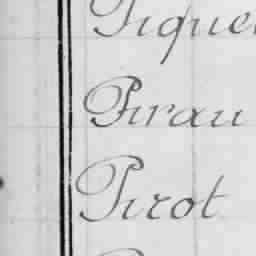 Piquet
Pirau
Pirot